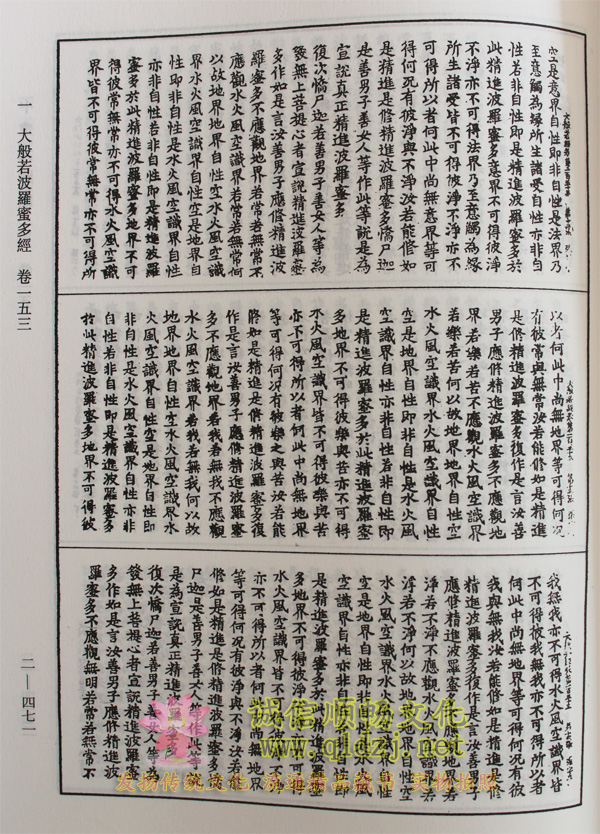 空是意界自性即非自性是法界乃
至意觸為緣所生諸受自性亦非自
性若非自性即是精進波羅蜜多於
此精進波羅蜜多意界不可得彼淨
不淨亦不可得法界乃至意觸為緣
所生諸受皆不可得彼淨不淨亦不
可得所以者何此中尚無意界等可
得何況有彼淨與不淨汝若能修如
是精進是修精進波羅蜜多憍尸迦
是善男子善女人等作此等說是為
宣說真正精進波羅蜜多
復次憍尸迦若善男子善女人等為
發無上菩提心者宣說精進波羅蜜
多作如是言汝善男子應修精進波
羅蜜多不應觀地界若常若無常不
應觀水火風空識界若常若無常何
以故地界地界自性空水火風空識
界水火風空識界自性空是地界自
性即非自性是水火風空識界自性
亦非自性若非自性即是精進波羅
蜜多於此精進波羅蜜多地界不可
得彼常無常亦不可得水火風空識
界皆不可得彼常無常亦不可得所
以者何此中尚無地界等可得何況
有彼常與無常汝若能修如是精進
是修精進波羅蜜多復作是言汝善
男子應修精進波羅蜜多不應觀地
界若樂若苦不應觀水火風空識界
若樂若苦何以故地界地界自性空
水火風空識界水火風空識界自性
空是地界自性即非自性是水火風
空識界自性亦非自性若非自性即
是精進波羅蜜多於此精進波羅蜜
多地界不可得彼樂與苦亦不可得
水火風空識界皆不可得彼樂與苦
亦不可得所以者何此中尚無地界
等可得何況有彼樂之與苦汝若能
修如是精進是修精進波羅蜜多復
作是言汝善男子應修精進波羅蜜
多不應觀地界若我若無我不應觀
水火風空識界若我若無我何以故
地界地界自性空水火風空識界水
火風空識界自性空是地界自性即
非自性是水火風空識界自性亦非
自性若非自性即是精進波羅蜜多
於此精進波羅蜜多地界不可得彼
我無我亦不可得水火風空識界皆
不可得彼我無我亦不可得所以者
何此中尚無地界等可得何況有彼
我與無我汝若能修如是精進是修
精進波羅蜜多復作是言汝善男子
應修精進波羅蜜多不應觀地界若
淨若不淨不應觀水火風空識界若
淨若不淨何以故地界地界自性空
水火風空識界水火風空識界自性
空是地界自性即非自性是水火風
空識界自性亦非自性若非自性即
是精進波羅蜜多於此精進波羅蜜
多地界不可得彼淨不淨亦不可得
水火風空識界皆不可得彼淨不淨
亦不可得所以者何此中尚無地界
等可得何況有彼淨與不淨汝若能
修如是精進是修精進波羅蜜多憍
尸迦是善男子善女人等作此等說
是為宣說真正精進波羅蜜多
復次憍尸迦若善男子善女人等為
發無上菩提心者宣說精進波羅蜜
多作如是言汝善男子應修精進波
羅蜜多不應觀無明若常若無常不
一 大般若波羅蜜多經 卷一五三
二—四七一
诚信顺畅文化
www.qldzj.net